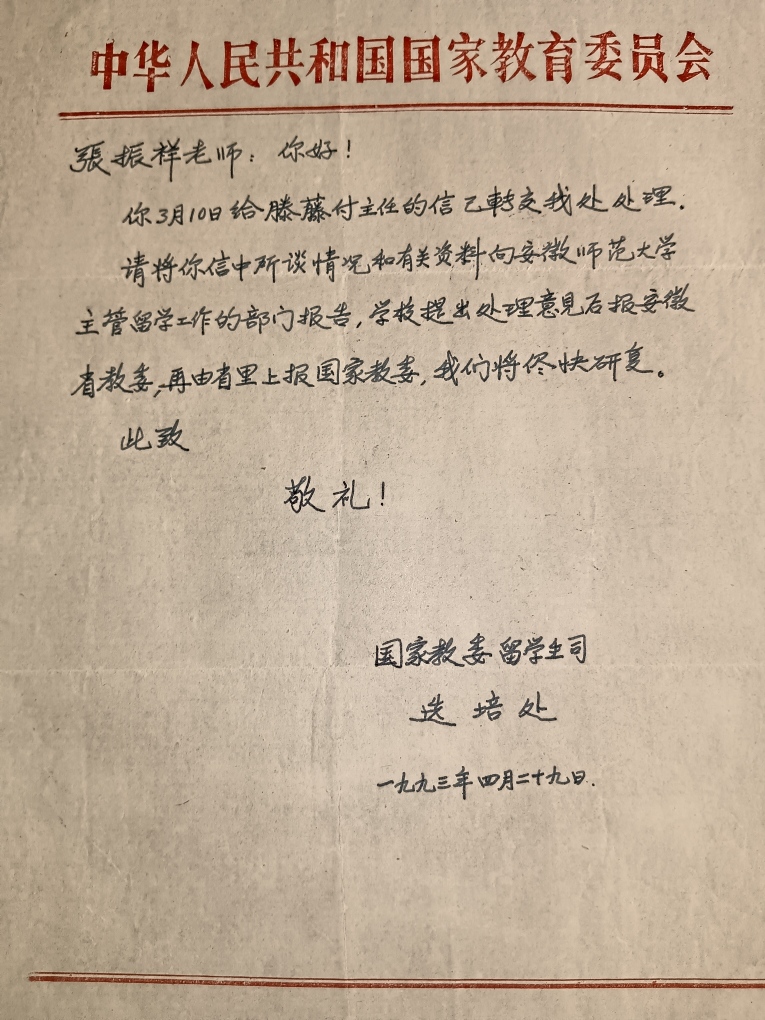 中华人民共和国国家教育委员会
張振祥老师：你好！
你3月10日给滕藤付主任的信已轉交我处处理.
请将你信中所谈情况和有关资料向安徽师范大学
主管留学工作的部门报告,学校提出处理意見后报安徽
省教委,再由省里上报国家教委,我们将尽快研复。
此致
敬礼!
国家教委留学生司
选培处
一九九三年四月二十九日.